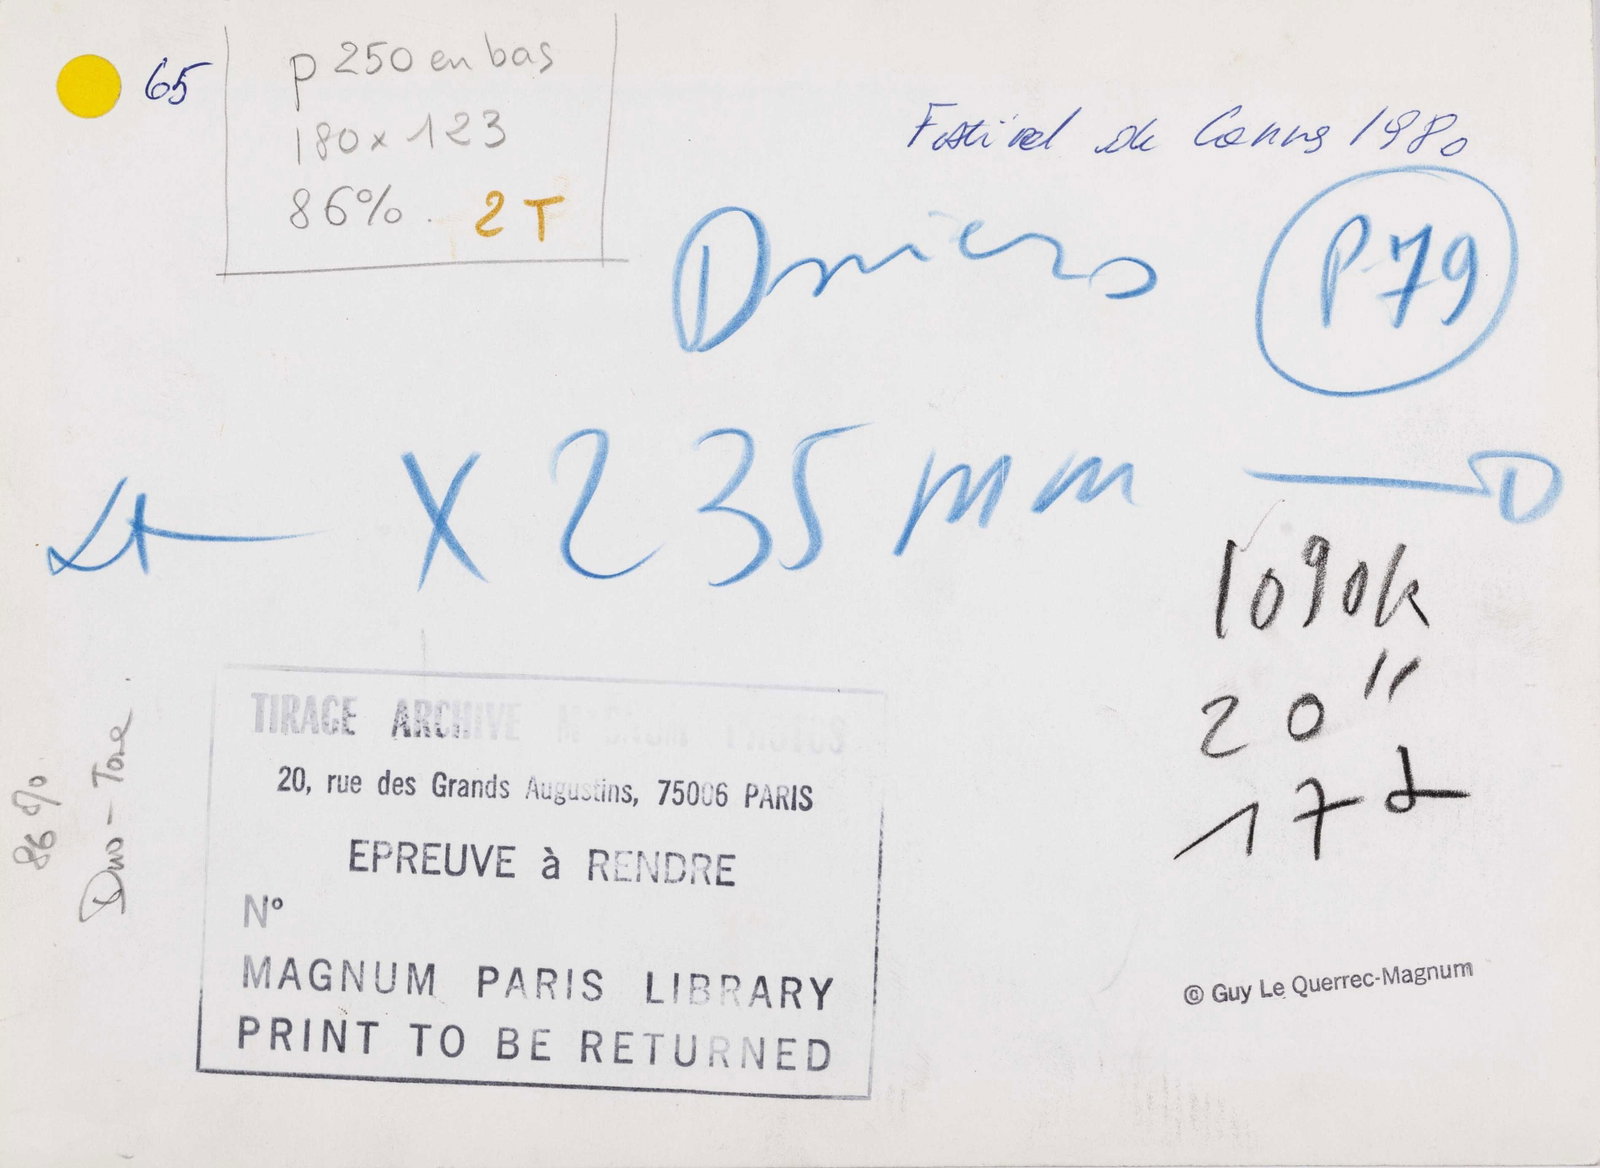 65
p 250 en bas
180 x 123
86%. 2 T
Festival de Cannes 1980
P79
X 235 mm
1090k
20"
17
86%
Duo-Tone
TIRAGE ARCHIVE MAGNUM PHOTOS
20, rue des Grands Augustins, 75006 PARIS
EPREUVE à RENDRE
N°
MAGNUM PARIS LIBRARY
PRINT TO BE RETURNED
© Guy Le Querrec-Magnum